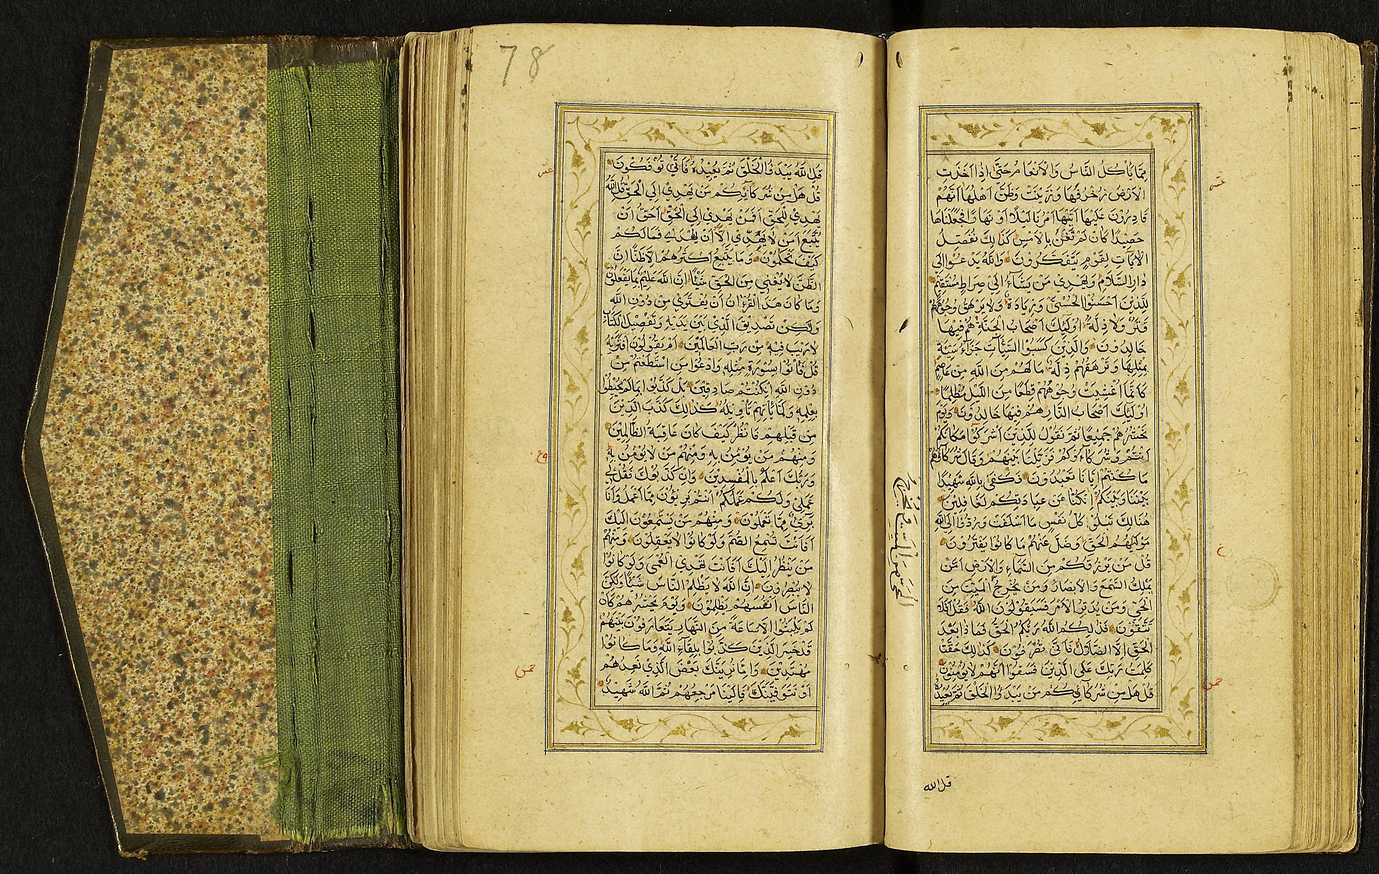 مِمَّا يَأْكُلُ النَّاسُ وَالْاَنْعَامُ حَتَّى اِذَا اَخَذَتِ
الْاَرْضُ زُخْرُفَهَا وَازَّيَّنَتْ وَظَنَّ اَهْلُهَا اَنَّهُمْ
قَادِرُونَ عَلَيْهَا اَتَيهَا اَمْرُنَا لَيْلًا اَوْ نَهَارًا فَجَعَلْنَاهَا
حَصِيدًا كَاَنْ لَمْ تَغْنَ بِالْاَمْسِ كَذَلِكَ نُفَصِّلُ
الْاٰيَاتِ لِقَوْمٍ يَتَفَكَّرُونَ وَاللَّهُ يَدْعُوا اِلَى
دَارِ السَّلَامِ وَيَهْدِي مَنْ يَشَاءُ اِلَى صِرَاطٍ مُسْتَقِيمٍ
لِلَّذِينَ اَحْسَنُوا الْحُسْنَى وَزِيَادَةٌ وَلَا يَرْهَقُ وُجُوهَهُمْ
قَتَرٌ وَلَا ذِلَّةٌ اُولَئِكَ اَصْحَابُ الْجَنَّةِ هُمْ فِيهَا
خَالِدُونَ وَالَّذِينَ كَسَبُوا السَّيِّئَاتِ جَزَاءُ سَيِّئَةٍ
بِمِثْلِهَا وَتَرْهَقُهُمْ ذِلَّةٌ مَا لَهُمْ مِنَ اللَّهِ مِنْ عَاصِمٍ
كَاَنَّمَا اُغْشِيَتْ وُجُوهُهُمْ قِطَعًا مِنَ اللَّيْلِ مُظْلِمًا
اُولَئِكَ اَصْحَابُ النَّارِ هُمْ فِيهَا خَالِدُونَ وَيَوْمَ
نَحْشُرُهُمْ جَمِيعًا ثُمَّ نَقُولُ لِلَّذِينَ اَشْرَكُوا مَكَانَكُمْ
اَنْتُمْ وَشُرَكَاؤُكُمْ فَزَيَّلْنَا بَيْنَهُمْ وَقَالَ شُرَكَاؤُهُمْ
مَا كُنْتُمْ اِيَّانَا تَعْبُدُونَ فَكَفَى بِاللَّهِ شَهِيدًا
بَيْنَنَا وَبَيْنَكُمْ اِنْ كُنَّا عَنْ عِبَادَتِكُمْ لَغَافِلِينَ
هُنَالِكَ تَبْلُو كُلُّ نَفْسٍ مَا اَسْلَفَتْ وَرُدُّوا اِلَى اللَّهِ
مَوْلَيهُمُ الْحَقِّ وَضَلَّ عَنْهُمْ مَا كَانُوا يَفْتَرُونَ
قُلْ مَنْ يَرْزُقُكُمْ مِنَ السَّمَاءِ وَالْاَرْضِ اَمَّنْ
يَمْلِكُ السَّمْعَ وَالْاَبْصَارَ وَمَنْ يُخْرِجُ الْمَيِّتَ مِنَ
الْحَيِّ وَمَنْ يُدَبِّرُ الْاَمْرَ فَسَيَقُولُونَ اللَّهُ فَقُلْ اَفَلَا
تَتَّقُونَ فَذَلِكُمُ اللَّهُ رَبُّكُمُ الْحَقُّ فَمَاذَا بَعْدَ
الْحَقِّ اِلَّا الضَّلَالُ فَاَنَّى تُصْرَفُونَ كَذَلِكَ حَقَّتْ
كَلِمَتُ رَبِّكَ عَلَى الَّذِينَ فَسَقُوا اَنَّهُمْ لَا يُؤْمِنُونَ
قُلْ هَلْ مِنْ شُرَكَائِكُمْ مَنْ يَبْدَؤُا الْخَلْقَ ثُمَّ يُعِيدُهُ
الحي من الميت ويخرج
قل الله
78
قُلِ اللَّهُ يَبْدَؤُا الْخَلْقَ ثُمَّ يُعِيدُهُ فَاَنَّى تُؤْفَكُونَ
قُلْ هَلْ مِنْ شُرَكَائِكُمْ مَنْ يَهْدِي اِلَى الْحَقِّ قُلِ اللَّهُ
يَهْدِي لِلْحَقِّ اَفَمَنْ يَهْدِي اِلَى الْحَقِّ اَحَقُّ اَنْ
يُتَّبَعَ اَمَّنْ لَا يَهِدِّي اِلَّا اَنْ يُهْدَى فَمَا لَكُمْ
كَيْفَ تَحْكُمُونَ وَمَا يَتَّبِعُ اَكْثَرُهُمْ اِلَّا ظَنًّا اِنَّ
الظَّنَّ لَا يُغْنِي مِنَ الْحَقِّ شَيْئًا اِنَّ اللَّهَ عَلِيمٌ بِمَا يَفْعَلُونَ
وَمَا كَانَ هَذَا الْقُرْاٰنُ اَنْ يُفْتَرَى مِنْ دُونِ اللَّهِ
وَلَكِنْ تَصْدِيقَ الَّذِي بَيْنَ يَدَيْهِ وَتَفْصِيلَ الْكِتَابِ
لَا رَيْبَ فِيهِ مِنْ رَبِّ الْعَالَمِينَ اَمْ يَقُولُونَ افْتَرَيهُ
قُلْ فَأْتُوا بِسُورَةٍ مِثْلِهِ وَادْعُوا مَنِ اسْتَطَعْتُمْ مِنْ
دُونِ اللَّهِ اِنْ كُنْتُمْ صَادِقِينَ بَلْ كَذَّبُوا بِمَا لَمْ يُحِيطُوا
بِعِلْمِهِ وَلَمَّا يَأْتِهِمْ تَأْوِيلُهُ كَذَلِكَ كَذَّبَ الَّذِينَ
مِنْ قَبْلِهِمْ فَانْظُرْ كَيْفَ كَانَ عَاقِبَةُ الظَّالِمِينَ
وَمِنْهُمْ مَنْ يُؤْمِنُ بِهِ وَمِنْهُمْ مَنْ لَا يُؤْمِنُ بِهِ
وَرَبُّكَ اَعْلَمُ بِالْمُفْسِدِينَ وَاِنْ كَذَّبُوكَ فَقُلْ لِي
عَمَلِي وَلَكُمْ عَمَلُكُمْ اَنْتُمْ بَرِيئُونَ مِمَّا اَعْمَلُ وَاَنَا
بَرِيءٌ مِمَّا تَعْمَلُونَ وَمِنْهُمْ مَنْ يَسْتَمِعُونَ اِلَيْكَ
اَفَاَنْتَ تُسْمِعُ الصُّمَّ وَلَوْ كَانُوا لَا يَعْقِلُونَ وَمِنْهُمْ
مَنْ يَنْظُرُ اِلَيْكَ اَفَاَنْتَ تَهْدِي الْعُمْيَ وَلَوْ كَانُوا
لَا يُبْصِرُونَ اِنَّ اللَّهَ لَا يَظْلِمُ النَّاسَ شَيْئًا وَلَكِنَّ
النَّاسَ اَنْفُسَهُمْ يَظْلِمُونَ وَيَوْمَ يَحْشُرُهُمْ كَاَنْ
لَمْ يَلْبَثُوا اِلَّا سَاعَةً مِنَ النَّهَارِ يَتَعَارَفُونَ بَيْنَهُمْ
قَدْ خَسِرَ الَّذِينَ كَذَّبُوا بِلِقَاءِ اللَّهِ وَمَا كَانُوا
مُهْتَدِينَ وَاِمَّا نُرِيَنَّكَ بَعْضَ الَّذِي نَعِدُهُمْ
اَوْ نَتَوَفَّيَنَّكَ فَاِلَيْنَا مَرْجِعُهُمْ ثُمَّ اللَّهُ شَهِيدٌ